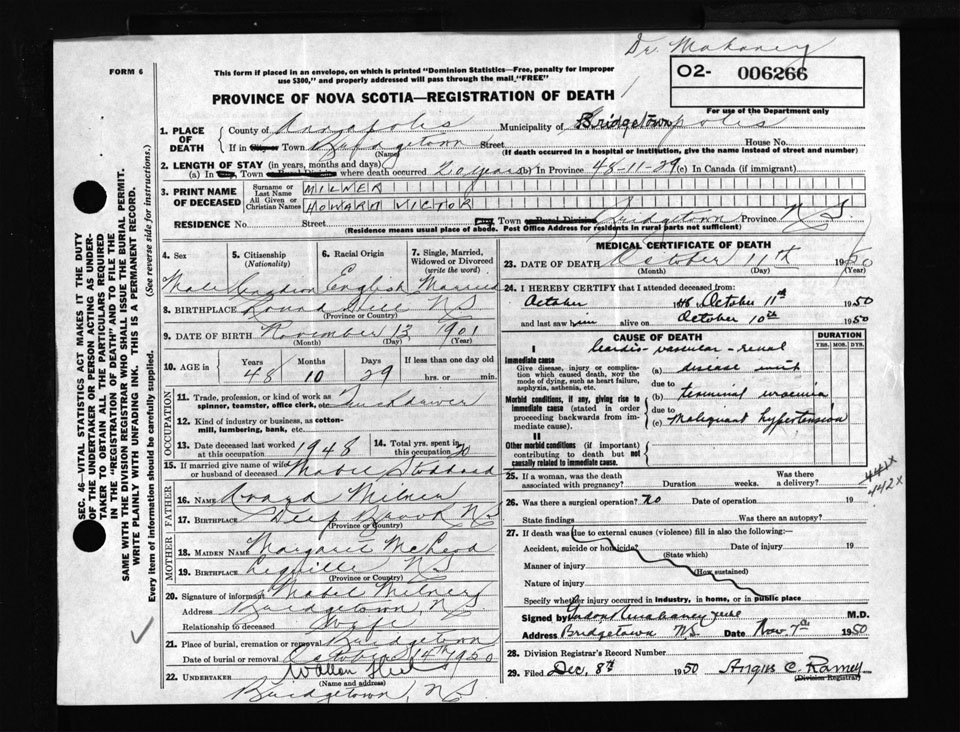 Dr. Mahaney
FORM 6
This form if placed in an envelope, on which is printed "Dominion Statistics—Free, penalty for improper
use $300," and properly addressed will pass through the mail "FREE"
02- 006266
For use of the Department only
PROVINCE OF NOVA SCOTIA—REGISTRATION OF DEATH
SEC. 46 VITAL STATISTICS ACT MAKES IT THE DUTY
OF THE UNDERTAKER OR PERSON ACTING AS UNDER-
TAKER TO OBTAIN ALL THE PARTICULARS REQUIRED
IN THE "REGISTRATION OF DEATH" AND TO FILE THE
SAME WITH THE DIVISION REGISTRAR WHO SHALL ISSUE THE BURIAL PERMIT.
WRITE PLAINLY WITH UNFADING INK. THIS IS A PERMANENT RECORD.
Every item of information should be carefully supplied. (See reverse side for instructions.)
1. PLACE OF DEATH County of Annapolis Municipality of Bridgetown
If in City or Town Bridgetown Street House No.
(Name) (If death occurred in a hospital or institution, give the name instead of street and number)
2. LENGTH OF STAY (in years, months and days)
(a) In City, Town or Rural Division where death occurred 20 years (b) In Province 48-11-29 (c) In Canada (if immigrant)
3. PRINT NAME OF DECEASED Surname or Last Name MILNER
All Given or Christian Names HOWARD VICTOR
RESIDENCE No. Street City, Town or Rural Division Bridgetown Province N S
(Residence means usual place of abode. Post Office Address for residents in rural parts not sufficient)
4. Sex 5. Citizenship (Nationality) 6. Racial Origin 7. Single, Married, Widowed or Divorced (write the word)
Male Canadian English Married
8. BIRTHPLACE Round Hill N S
(Province or Country)
9. DATE OF BIRTH November 13, 1901
(Month) (Day) (Year)
10. AGE in Years Months Days If less than one day old
48 10 29 hrs. or min.
OCCUPATION
11. Trade, profession, or kind of work as
spinner, teamster, office clerk, etc. Truckdriver
12. Kind of industry or business, as cotton-
mill, lumbering, bank, etc.
13. Date deceased last worked at this occupation 1948 14. Total yrs. spent in this occupation 20
15. If married give name of wife or husband of deceased Mabel Stoddard
FATHER
16. NAME Milner
17. BIRTHPLACE Deep Brook N S
(Province or Country)
MOTHER
18. MAIDEN NAME Margaret McLeod
19. BIRTHPLACE Lequille N S
(Province or Country)
20. Signature of informant Mabel Milner
Address Bridgetown, N S.
Relationship to deceased Wife
21. Place of burial, cremation or removal Bridgetown
Date of burial or removal October 14th 1950
22. UNDERTAKER
(Name and address)
Bridgetown, N S
MEDICAL CERTIFICATE OF DEATH
23. DATE OF DEATH October 11th 1950
(Month) (Day) (Year)
24. I HEREBY CERTIFY that I attended deceased from:
October 1948 to October 11th 1950
and last saw him alive on October 10th 1950
CAUSE OF DEATH DURATION
YRS. MOS. DYS.
I
Immediate cause
Give disease, injury or complication which caused death, not the mode of dying, such as heart failure, asphyxia, asthenia, etc.
Cardio-vascular-renal
(a) disease with
due to
Morbid conditions, if any, giving rise to immediate cause (stated in order proceeding backwards from immediate cause).
(b) terminal uraemia
due to
(c) malignant hypertension
II
Other morbid conditions (if important) contributing to death but not causally related to immediate cause.
25. If a woman, was the death associated with pregnancy? Duration weeks. Was there a delivery?
442x
26. Was there a surgical operation? no Date of operation 19
State findings Was there an autopsy?
27. If death was due to external causes (violence) fill in also the following:
Accident, suicide or homicide? Date of injury 19
(State which)
Manner of injury
(How sustained)
Nature of injury
Specify whether injury occurred in industry, in home, or in public place
Signed by M.D.
Address Bridgetown NS Date Nov 7th 1950
28. Division Registrar's Record Number
29. Filed Dec. 8th 1950 Angus C. Ramey
(Division Registrar)